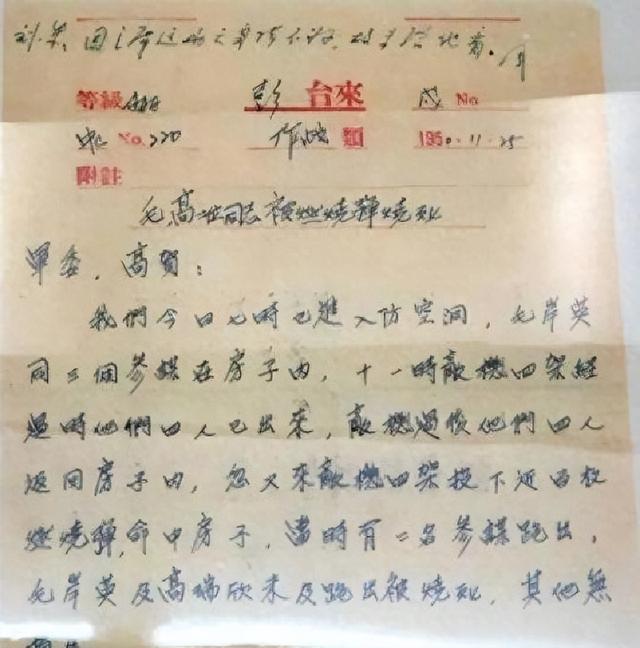 等級 彭 台來 戌 No
No. 220 作战 類 1950.11.25
附註
毛高二同志被燃燒彈燒死
軍委，高賀：
我們今日七時已進入防空洞，毛岸英
同三個參謀在房子內，十一時敵機四架經
過時他們四人已出來，敵機過後他們四人
返回房子內，忽又來敵機四架投下近百枚
燃燒彈，命中房子，當時有二名參謀跑出，
毛岸英及高瑞欣未及跑出被燒死，其他無